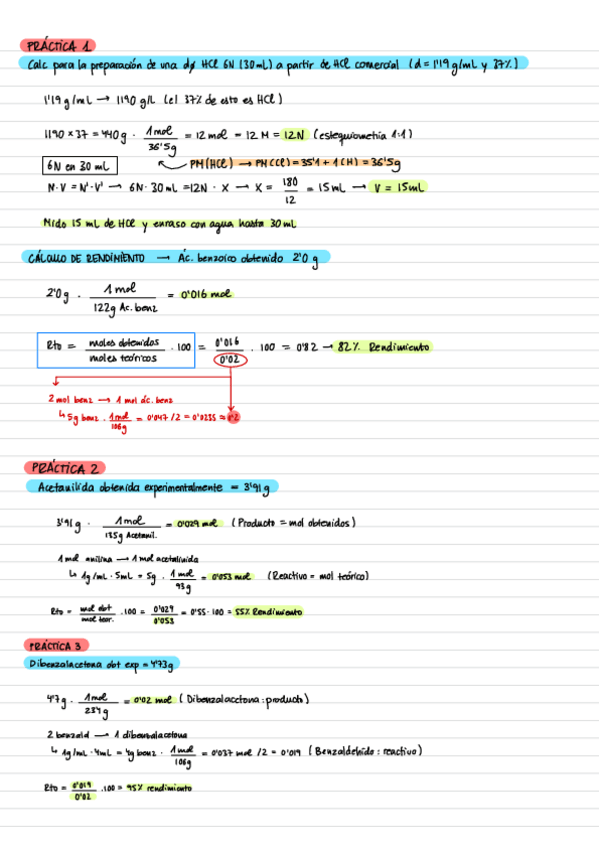 PRÁCTICA 1
Calc para la preparación de una dø HCl 6N (30mL) a partir de HCl comercial (d = 1'19 g/mL y 37%)
1'19 g/mL → 1190 g/L (el 37% de esto es HCl)
1190 × 37 = 440g · 1mol / 36'5g = 12 mol = 12 M = 12N (estequiometría 1:1)
6N en 30 mL
PM(HCl) → PM(Cl) = 35'1 + 1(H) = 36'5g
N·V = N'·V' → 6N · 30mL = 12N · X → X = 180 / 12 = 15mL → V = 15mL
Mido 15 mL de HCl y enraso con agua hasta 30mL
CÁLCULO DE RENDIMIENTO → Ác. benzoico obtenido 2'0 g
2'0g · 1mol / 122g Ac. benz = 0'016 mol
Rto = moles obtenidos / moles teóricos · 100 = 0'016 / 0'02 · 100 = 0'82 → 82% Rendimiento
2 mol benz → 1 mol ác. benz
↳ 5g benz · 1mol / 106g = 0'047 /2 = 0'0235 ≈ 0'2
PRÁCTICA 2
Acetanilida obtenida experimentalmente = 3'91g
3'91g · 1mol / 135g Acetanil. = 0'029 mol (Producto = mol obtenidos)
1 mol anilina → 1 mol acetalinida
↳ 1g/mL · 5mL = 5g · 1 mol / 93g = 0'053 mol (Reactivo = mol teórico)
Rto = mol obt / mol teor. · 100 = 0'029 / 0'053 = 0'55 · 100 = 55% Rendimiento
PRÁCTICA 3
Dibenzalacetona obt exp = 4'73g
4'7g · 1mol / 234g = 0'02 mol (Dibenzalacetona: producto)
2 benzald → 1 dibenzalacetona
↳ 1g/mL · 4mL = 4g benz · 1mol / 106g = 0'037 mol /2 = 0'019 (Benzaldehído: reactivo)
Rto = 0'019 / 0'02 · 100 = 95% rendimiento